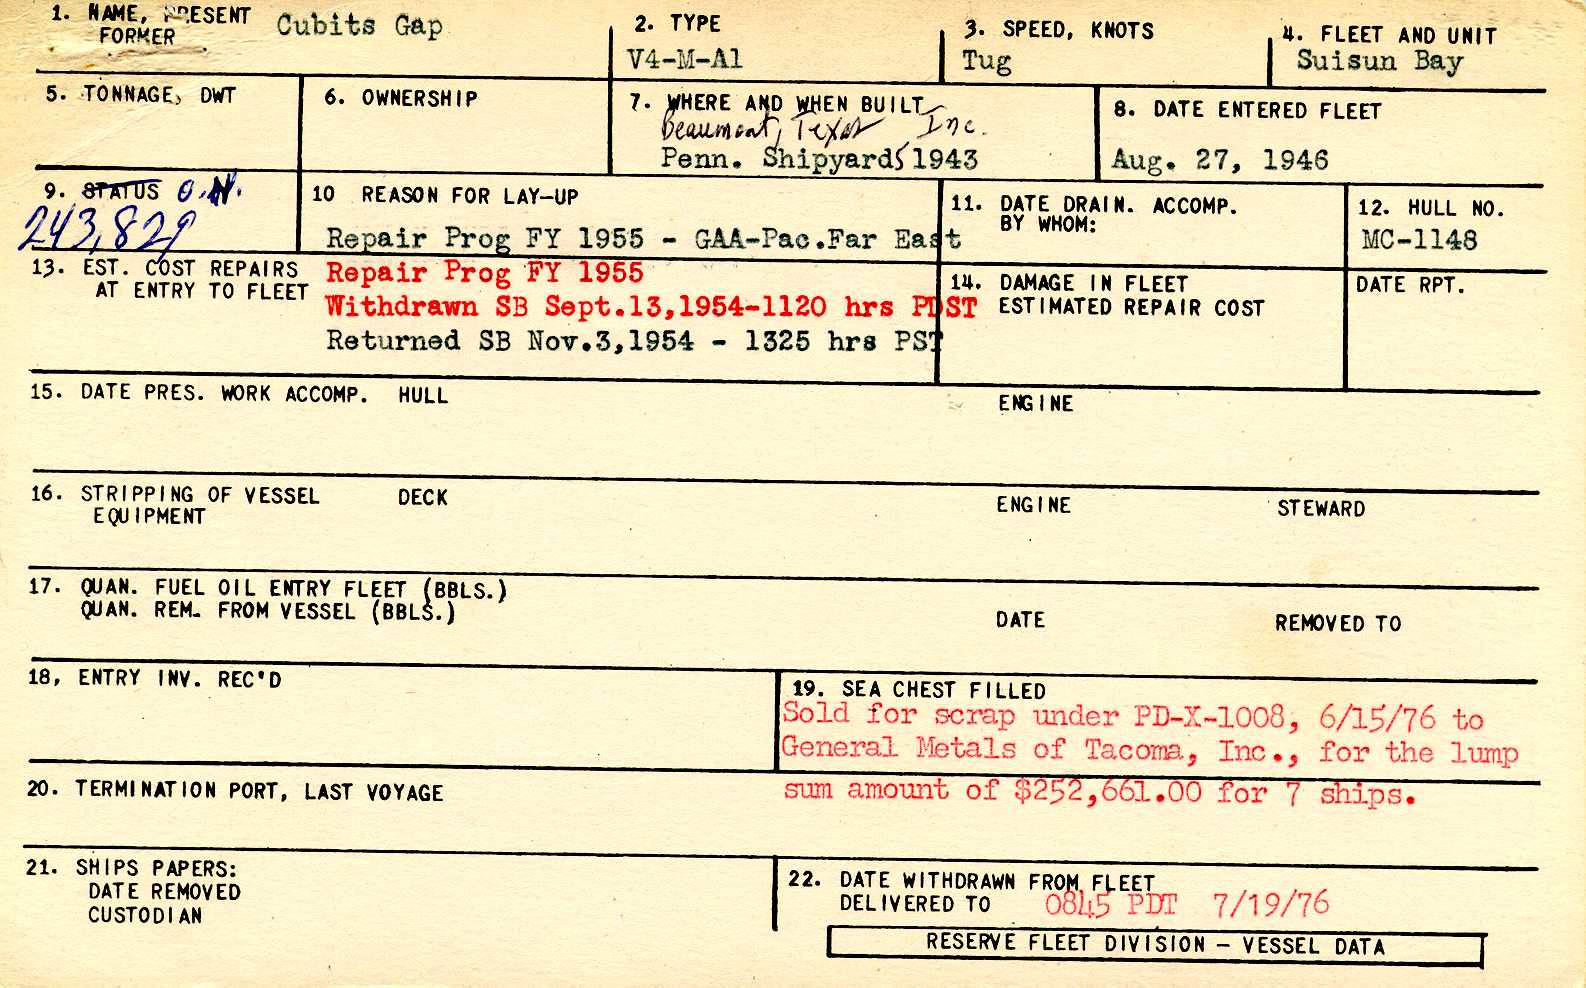 1. NAME, PRESENT Cubits Gap
FORMER
2. TYPE
V4-M-A1
3. SPEED, KNOTS
Tug
4. FLEET AND UNIT
Suisun Bay
5. TONNAGE, DWT
6. OWNERSHIP
7. WHERE AND WHEN BUILT
Beaumont, Texas Inc.
Penn. Shipyards 1943
8. DATE ENTERED FLEET
Aug. 27, 1946
9. STATUS O.N.
243,829
10 REASON FOR LAY-UP
Repair Prog FY 1955 - GAA-Pac.Far East
11. DATE DRAIN. ACCOMP.
BY WHOM:
12. HULL NO.
MC-1148
13. EST. COST REPAIRS
AT ENTRY TO FLEET
Repair Prog FY 1955
Withdrawn SB Sept.13,1954-1120 hrs PDST
Returned SB Nov.3,1954 - 1325 hrs PST
14. DAMAGE IN FLEET
ESTIMATED REPAIR COST
DATE RPT.
15. DATE PRES. WORK ACCOMP. HULL
ENGINE
16. STRIPPING OF VESSEL DECK
EQUIPMENT
ENGINE
STEWARD
17. QUAN. FUEL OIL ENTRY FLEET (BBLS.)
QUAN. REM. FROM VESSEL (BBLS.)
DATE
REMOVED TO
18, ENTRY INV. REC'D
19. SEA CHEST FILLED
Sold for scrap under PD-X-1008, 6/15/76 to
General Metals of Tacoma, Inc., for the lump
sum amount of $252,661.00 for 7 ships.
20. TERMINATION PORT, LAST VOYAGE
21. SHIPS PAPERS:
DATE REMOVED
CUSTODIAN
22. DATE WITHDRAWN FROM FLEET
DELIVERED TO 0845 PDT 7/19/76
RESERVE FLEET DIVISION - VESSEL DATA